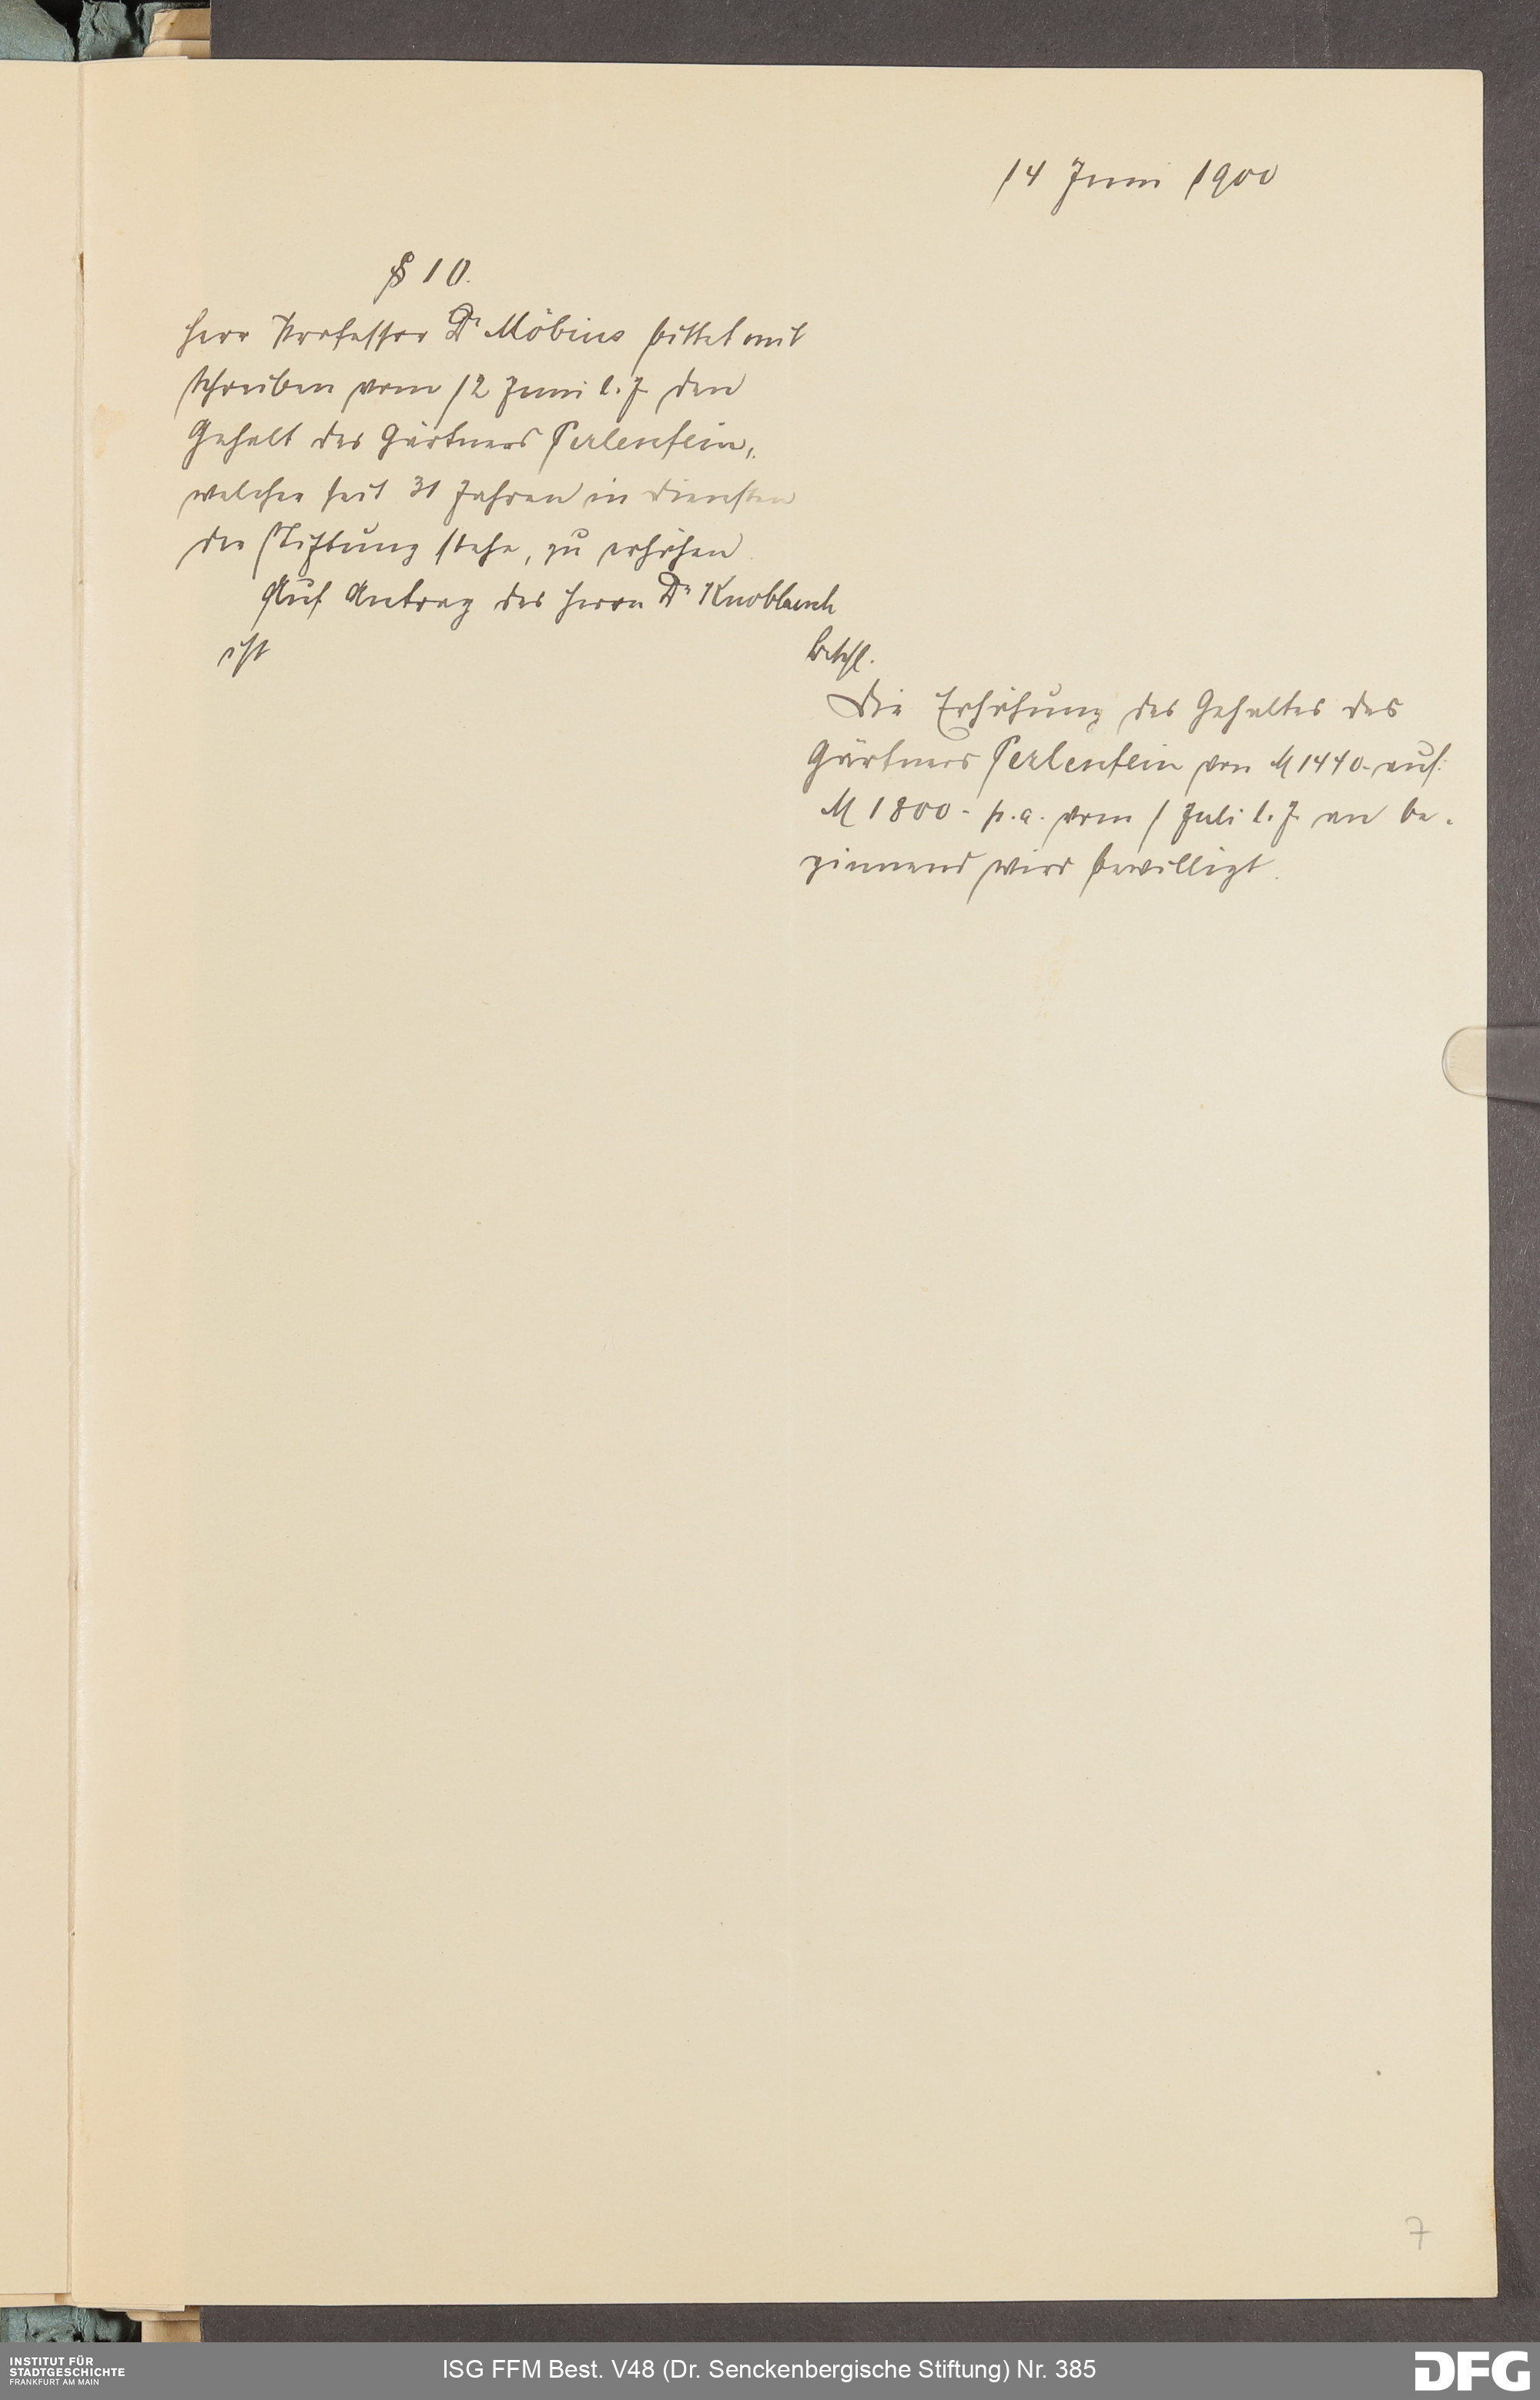 14 Juni 1900
§ 10.
Herr Professor Dr Möbius bittet mit
Schreiben vom 12 Juni l. J. den
Gehalt des Gärtners Perlenfein,
welcher seit 31 Jahren in Diensten
der Stiftung stehe, zu erhöhen.
Auf Antrag des Herrn Dr Knoblauch
ist
beschl.
Die Erhöhung des Gehaltes des
Gärtners Perlenfein von M 1440.- auf
M 1800.- p.a. vom 1 Juli l. J. an be-
ginnend wird bewilligt.
7
INSTITUT FÜR
STADTGESCHICHTE
FRANKFURT AM MAIN
ISG FFM Best. V48 (Dr. Senckenbergische Stiftung) Nr. 385
DFG